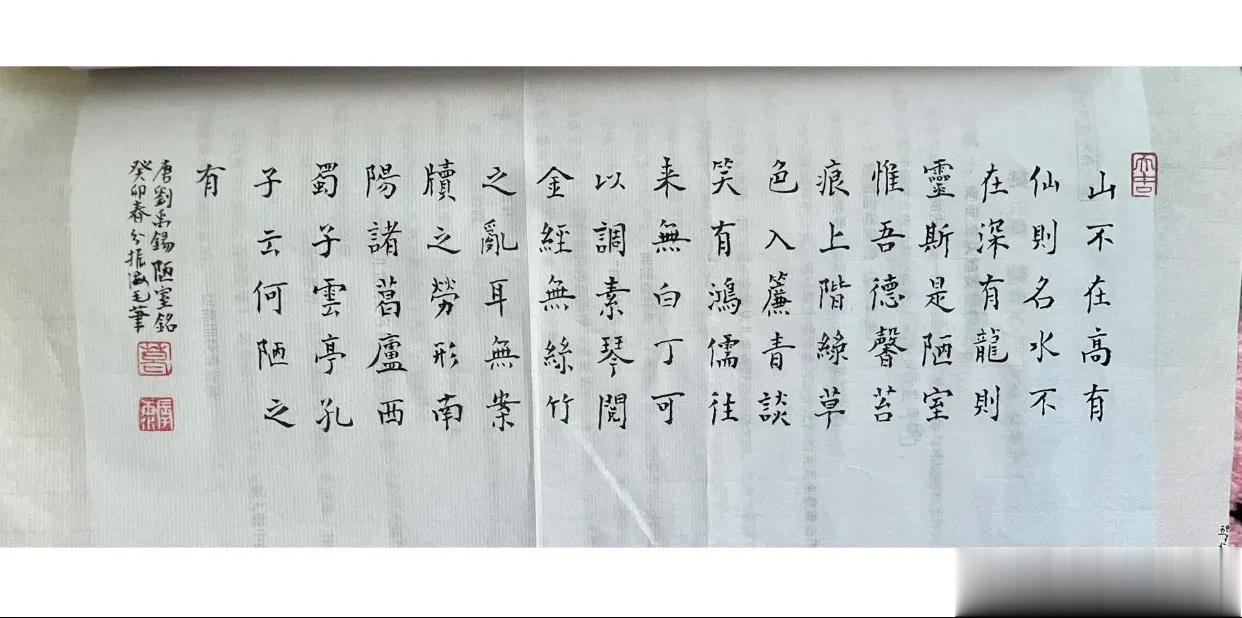 山不在高有
仙則名水不
在深有龍則
靈斯是陋室
惟吾德馨苔
痕上階綠草
色入簾青談
笑有鴻儒往
来無白丁可
以調素琴閱
金經無絲竹
之亂耳無案
牘之勞形南
陽諸葛廬西
蜀子雲亭孔
子云何陋之
有
唐劉禹錫陋室銘
癸卯春分振海毛筆